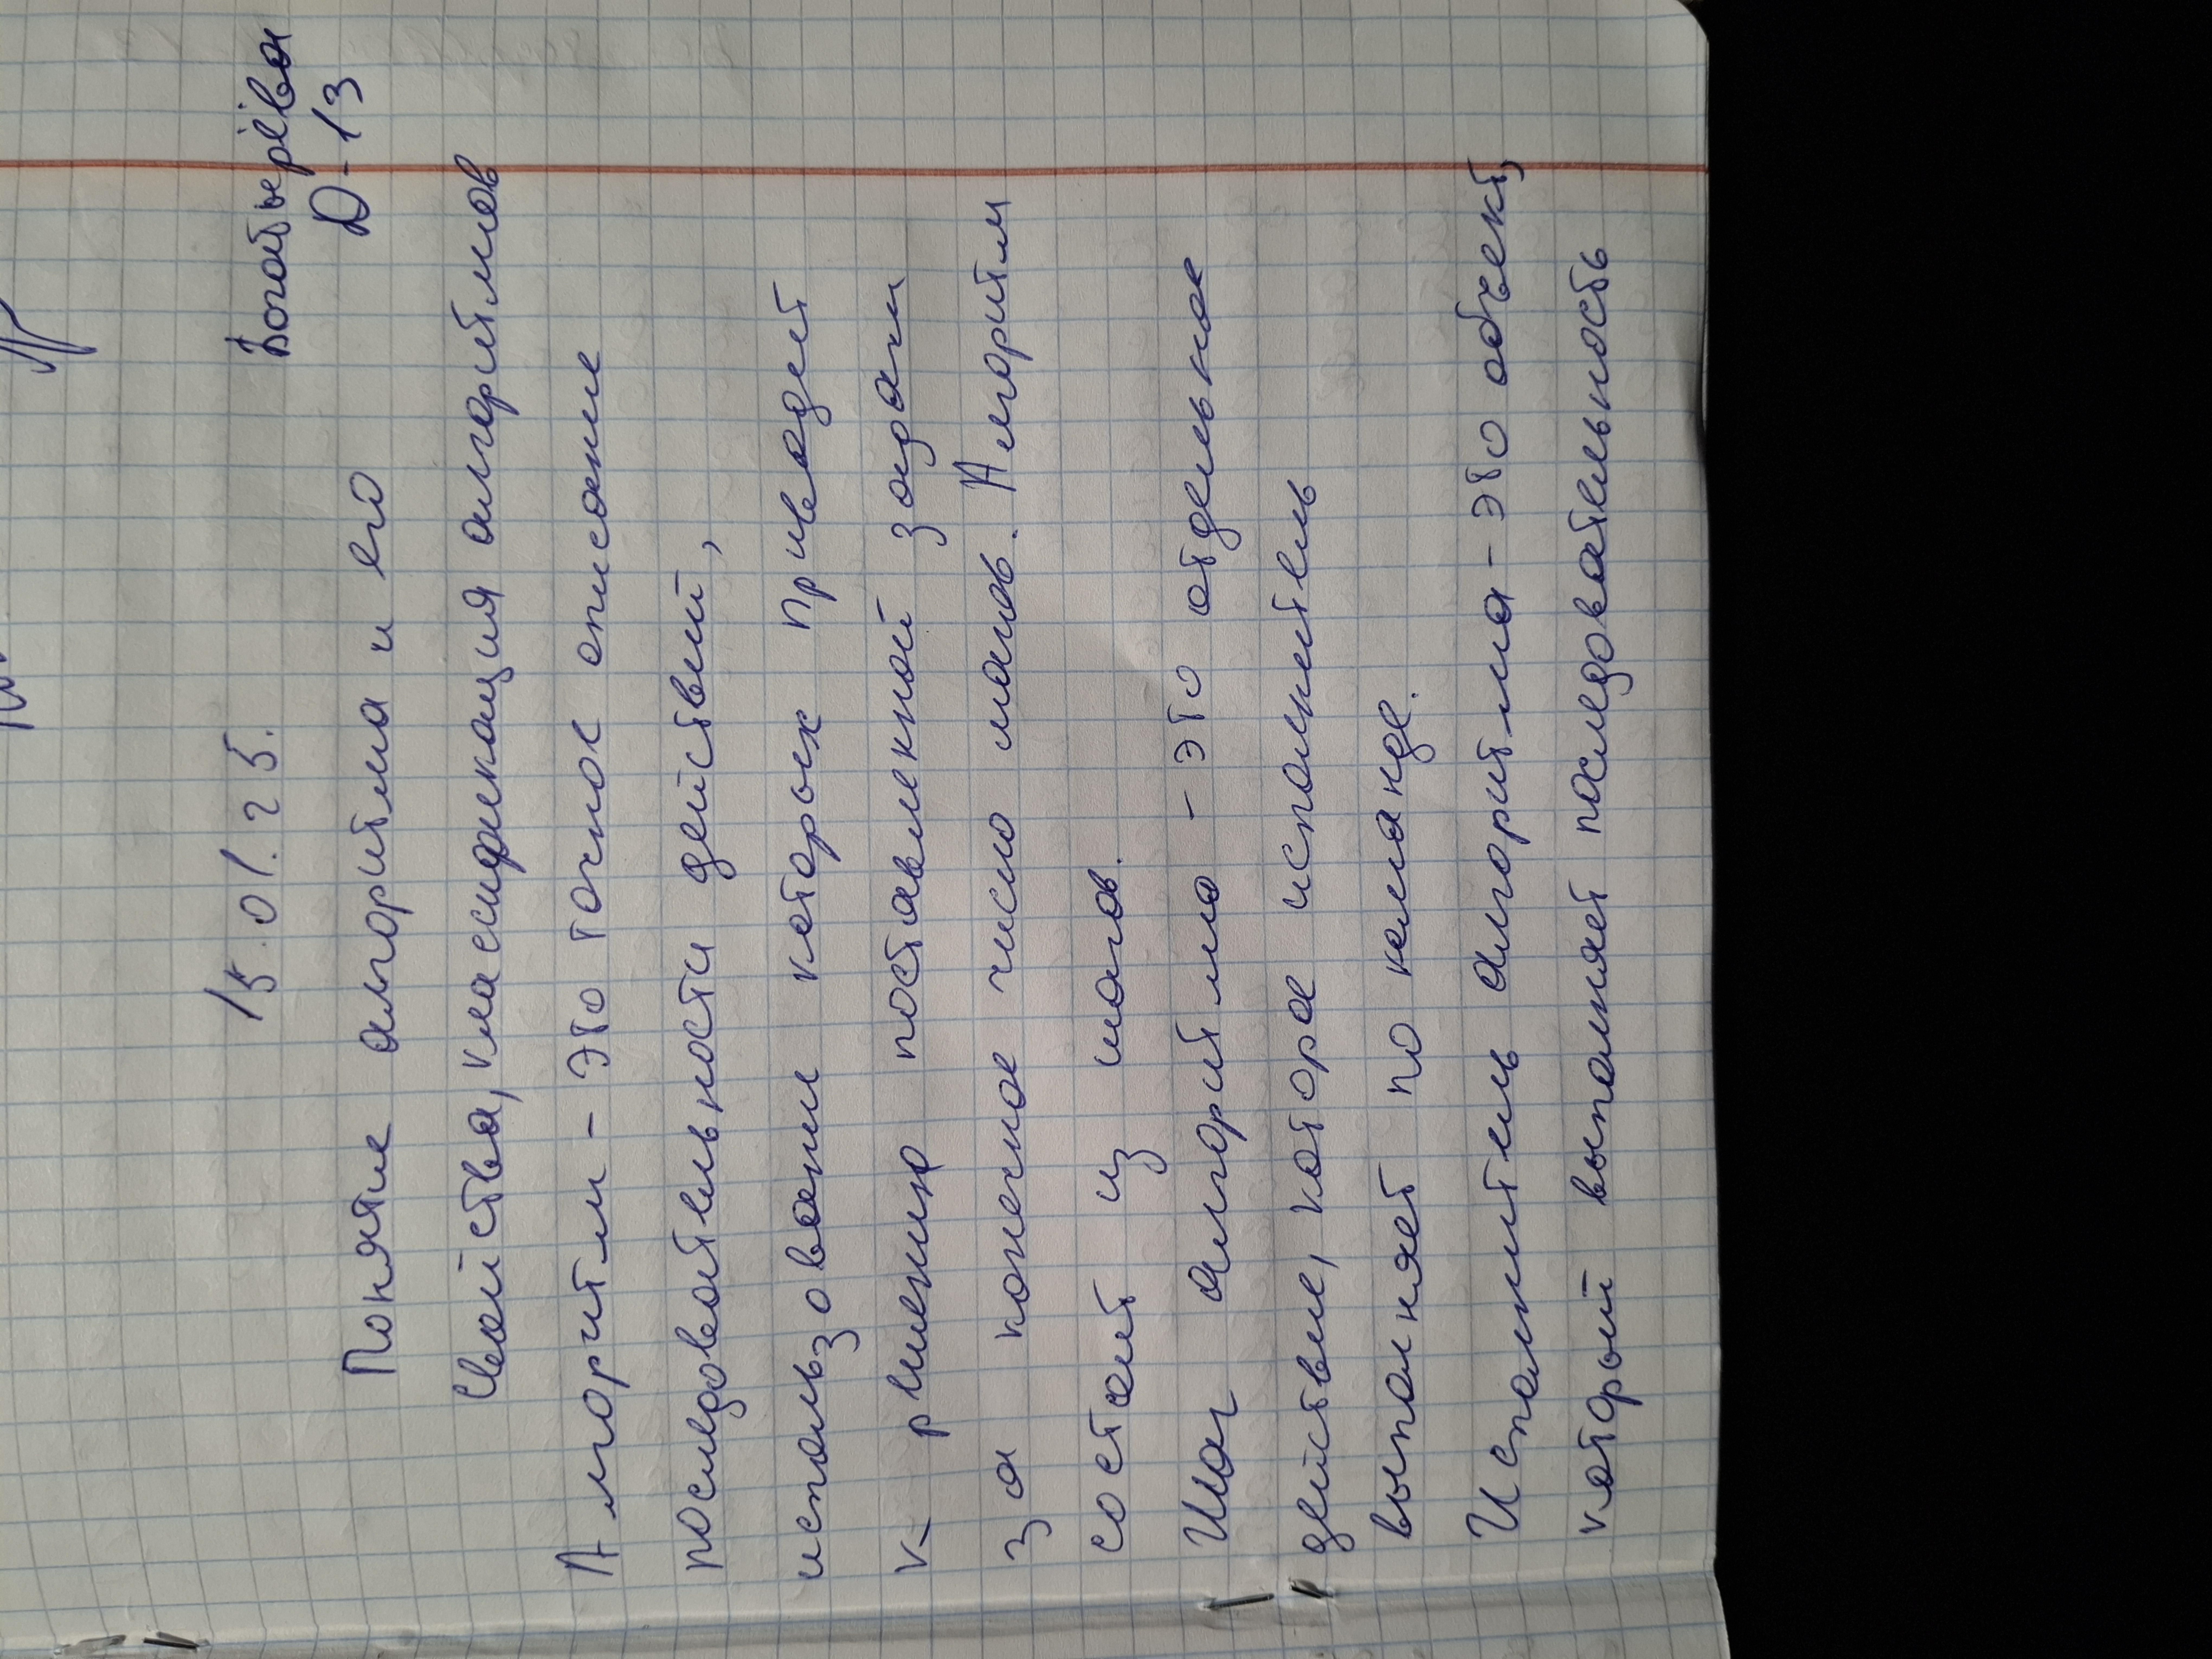 15.01.25. Богатырёва
D-13
Понятие алгоритма и его
свойства, класификация алгоритмов
Алгоритм - это точное описание
последовательности действий,
использование которых приводет
к решению поставленной задачи
за конечное число шагов. Алгоритм
состоит из шагов.
Шаг алгоритма - это отдельное
действие, которое исполнитель
выполняет по команде.
Исполнитель алгоритма - это объект,
который выполняет последовательность